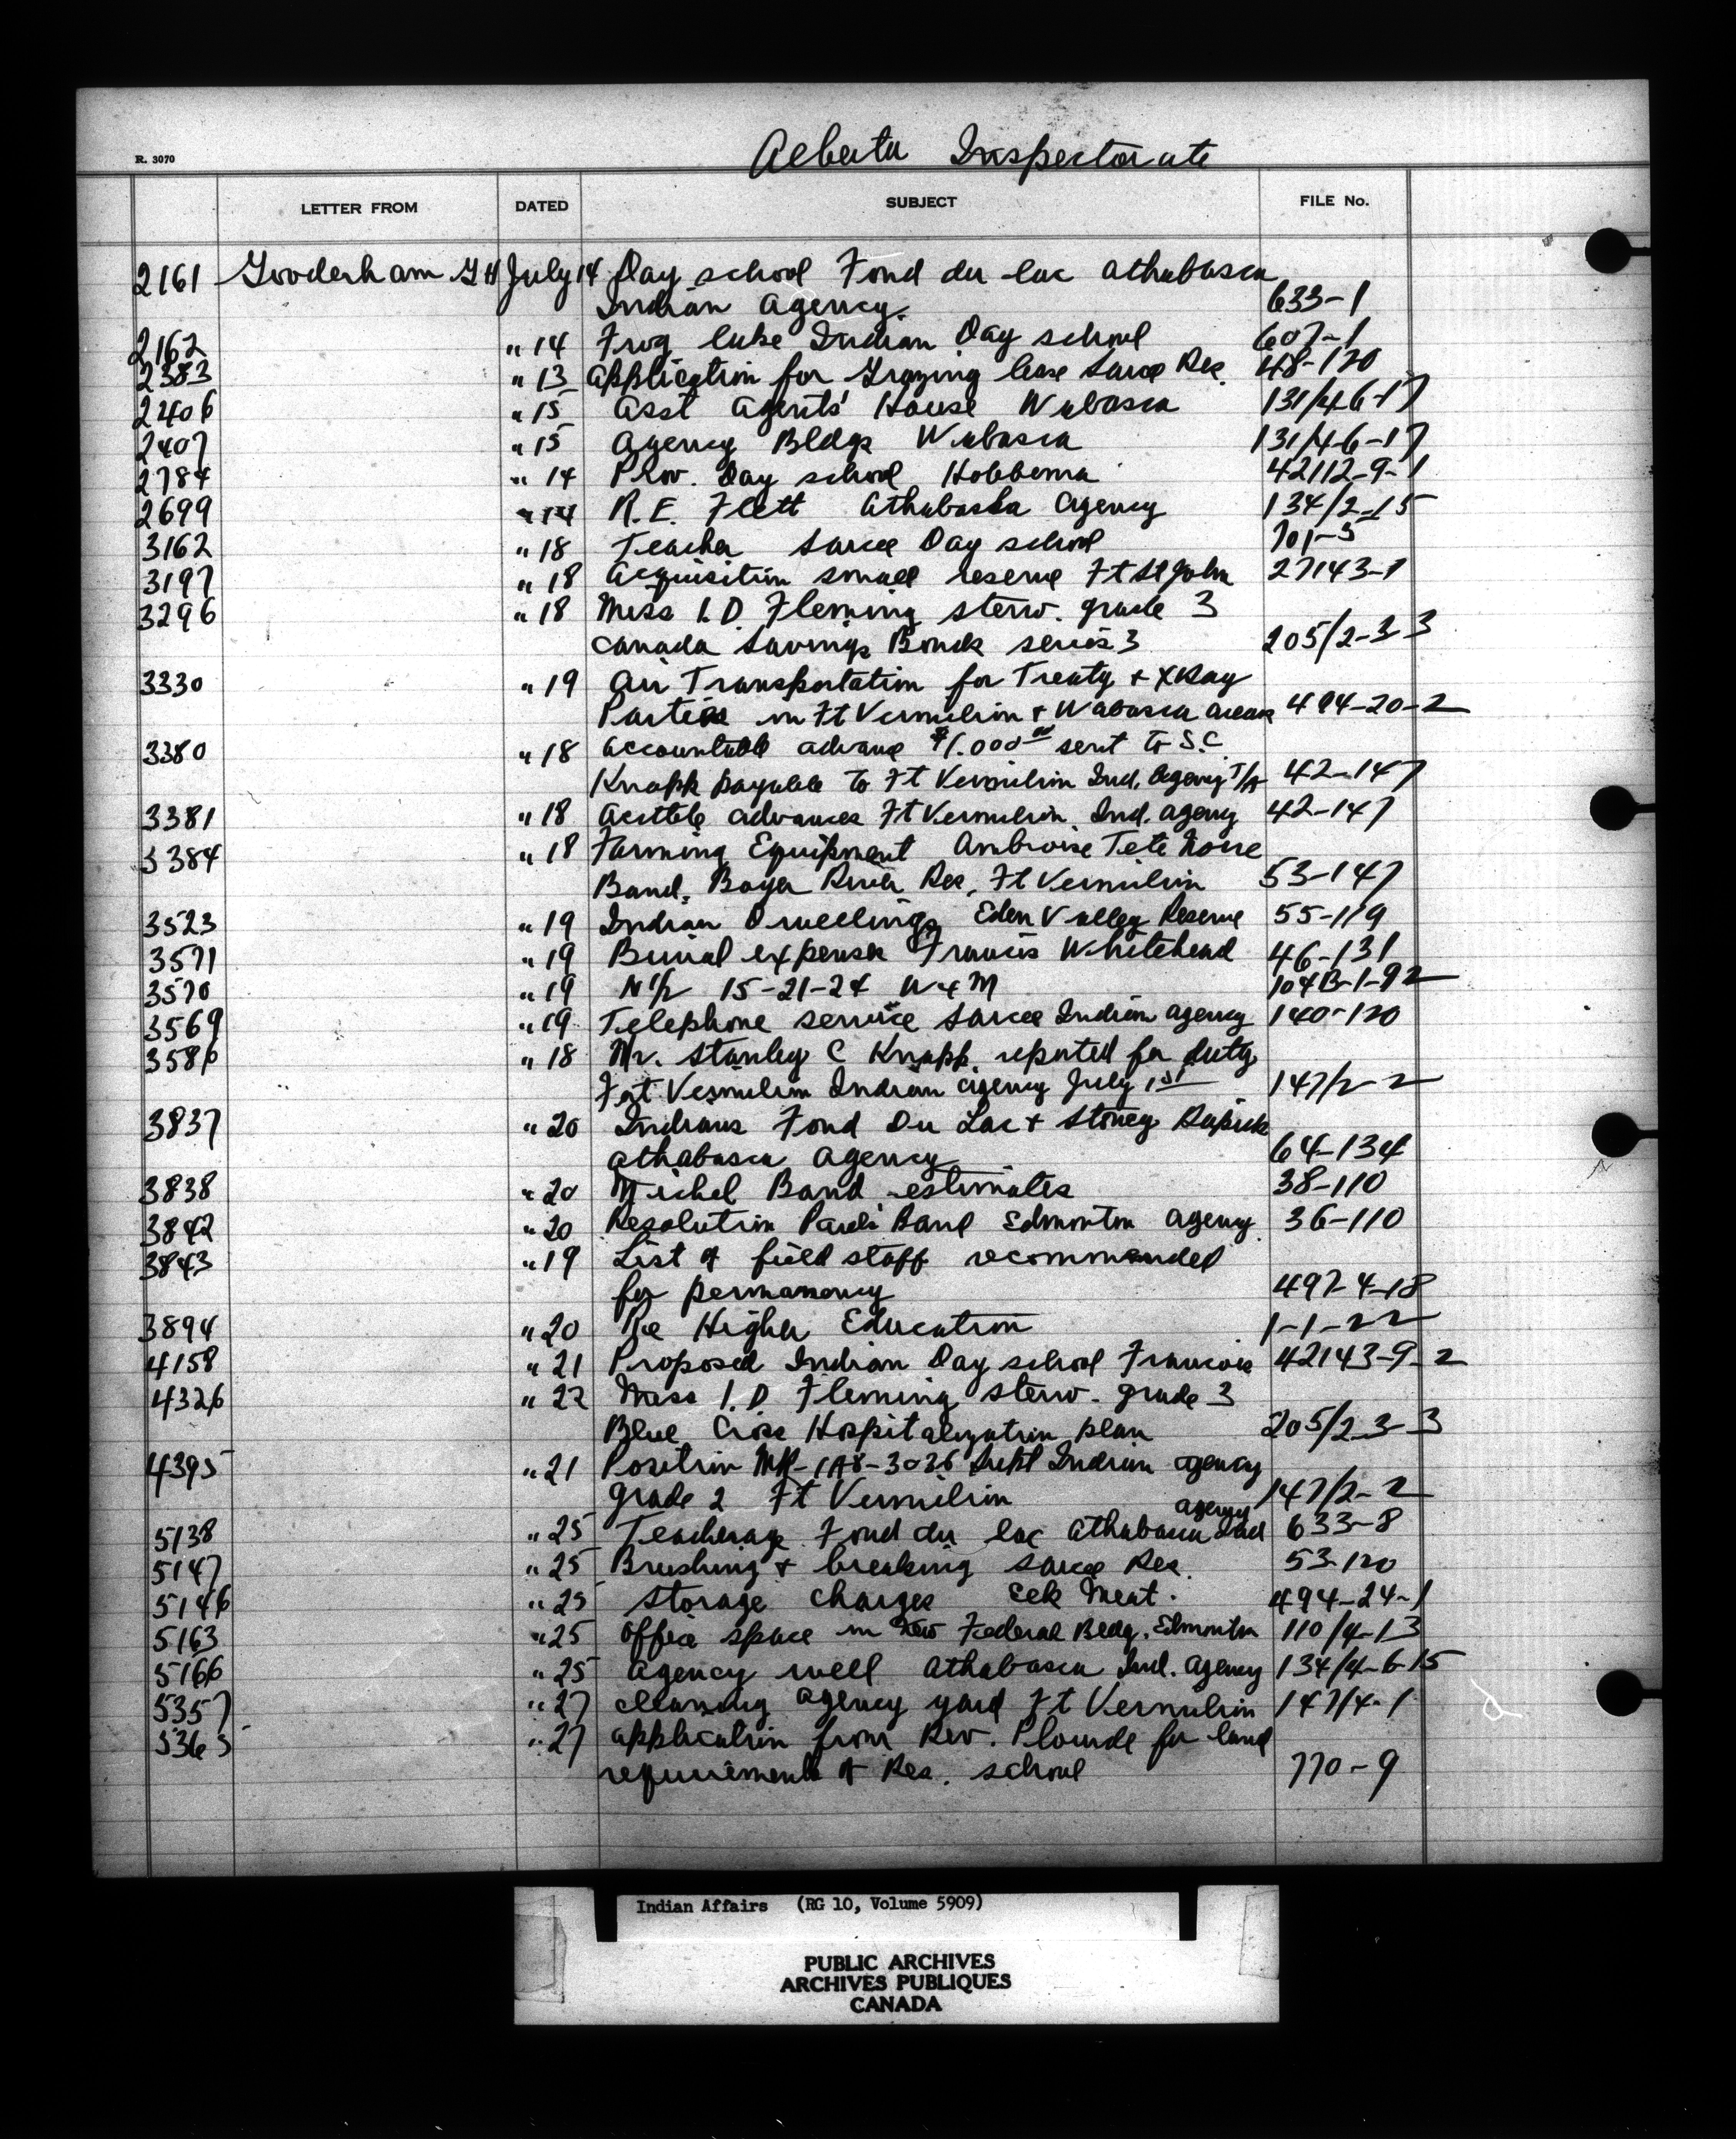 R. 3070
Alberta Inspectorate
LETTER FROM DATED SUBJECT FILE No.
2161 Gooderham G H July 14 Day school Fond du lac Athabasca
Indian Agency. 633-1
2162 " 14 Frog lake Indian Day school 607-1
2383 " 13 Application for Grazing lease Sarcee Res. 48-120
2406 " 15 Asst Agents' House Wabasca 131/4-6-17
2407 " 15 Agency Bldgs Wabasca 131/4-6-17
2784 " 14 Prov. Day school Hobbema 42112-9-1
2699 " 14 R. E. Flett Athabaska Agency 134/2-15
3162 " 18 Teacher Sarcee Day school 701-5
3197 " 18 Acquisition small reserve Ft St John 27143-1
3296 " 18 Miss I. D. Fleming steno. grade 3
Canada Savings Bonds series 3 205/2-3-3
3330 " 19 Air Transportation for Treaty + XRay
Parties in Ft Vermilion + Wabasca areas 494-20-2
3380 " 18 Accountable advance $1.000 00 sent to S.C
Knapp payable to Ft Vermilion Ind. Agency T/A 42-147
3381 " 18 Acctble advances Ft Vermilion Ind. Agency 42-147
3384 " 18 Farming Equipment Ambroise Tete Noire
Band, Boyer River Res, Ft Vermilion 53-147
3523 " 19 Indian Dwellings Eden Valley Reserve 55-119
3571 " 19 Burial expenses Francis Whitehead 46-131
3570 " 19 N½ 15-21-24 W4M 104B-1-92
3569 " 19 Telephone service Sarcee Indian Agency 140-120
3586 " 18 Mr. Stanley C Knapp reported for duty
Fort Vermilion Indian Agency July 1st 147/2-2
3837 " 20 Indians Fond Du Lac + Stoney Rapids
Athabasca Agency 64-134
3838 " 20 Michel Band estimates 38-110
3842 " 20 Resolution Pauls Band Edmonton Agency 36-110
3843 " 19 List of field staff recommended
for permanency 497-4-18
3894 " 20 Re Higher Education 1-1-22
4158 " 21 Proposed Indian Day school Francois 42143-9-2
4326 " 22 Miss I. D. Fleming steno. grade 3
Blue Cross Hospitalization plan 205/2-3-3
4395 " 21 Position MR-IAB-3036 Supt Indian Agency
grade 2 Ft Vermilion 147/2-2
agency
5138 " 25 Teacherage Fond du lac Athabasca Ind 633-8
5147 " 25 Brushing + breaking Sarcee Res. 53-120
5146 " 25 Storage charges Elk Meat. 494-24-1
5163 " 25 Office space in New Federal Bldg. Edmonton 110/4-13
5166 " 25 Agency well Athabasca Ind. Agency 134/4-6-15
5357 " 27 Cleaning agency yard Ft Vermilion 147/4-1
5365 " 27 Application from Rev. Plourde for land
requirements of Res. school 770-9
Indian Affairs (RG 10, Volume 5909)
PUBLIC ARCHIVES
ARCHIVES PUBLIQUES
CANADA